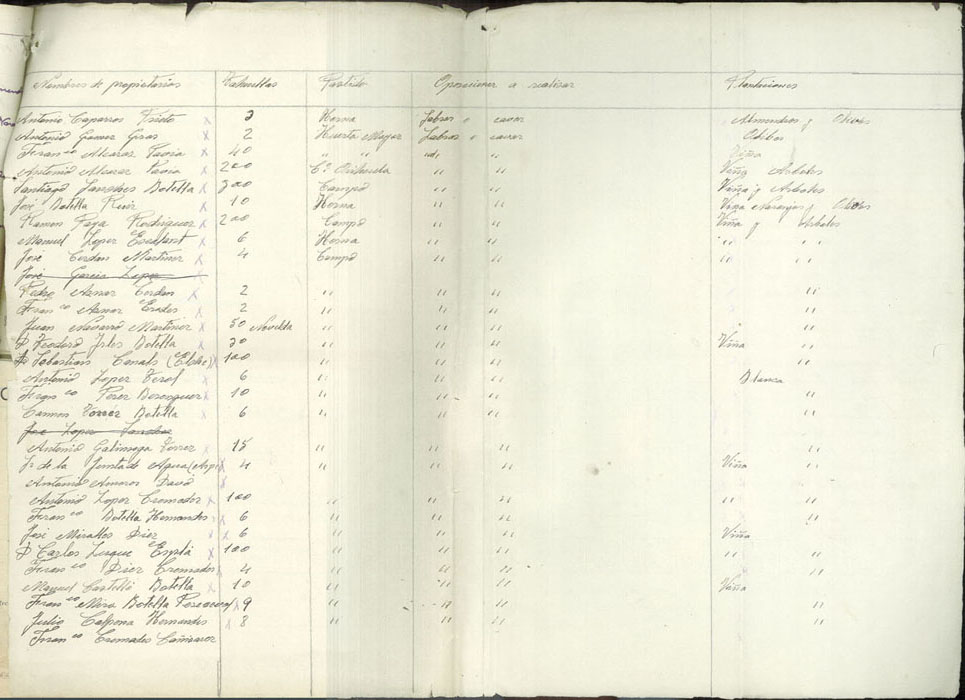 Nombres de propietarios Tahullas Partido Operaciones a realizar Plantaciones
Antonio Caparros Prieto x 2 Horna Labrar o cavar Almendros y Olivos
Antonio Gomez Gras x 2 Huerta Mayor Labrar o cavar Olivos
Franco Alcaraz Pavia x 40 " " " " Viña
Antonio Alcaraz Pavia x 200 Cº Orihuela " " Viña Arboles
Santiago Sanchez Botella x 300 Campo " " Viña y Arboles
José Botella Ruiz x 10 Horna " " Viña Naranjos y Olivos
Ramon Paya Rodriguez x 200 Campo " " Viña y Arboles
Manuel Lopez x 6 Horna " " " " "
José Cerdan Martinez x 4 Campo " " " " "
José Garcia Lopez
Pedro Aznar Cerdan x 2 " " " "
Franco Aznar x 2 " " " "
Juan Navarro Martinez x 50 Novelda " " " "
D Teodoro Botella x 30 " " " Viña "
D Sebastian Canals (Elche) x 100 " " " "
Antonio Lopez Terol x 6 " " " Blanca
Franco Perez x 10 " " " "
Carmen Torres Botella x 6 " " " "
José Lopez Sanchez
Antonio Galinsoga Torres 15 " " " "
Jº de la Junta de Agua x 4 " " " Viña "
Antonio Amoros David
Antonio Lopez Cremades x 100 " " " " "
Franco Botella Hernandez x 6 " " " "
José Miralles Diez x 6 " " " Viña
D Carlos Luque Esplá x 100 " " " " "
Franco Diez Cremades 4 " " " "
Manuel Castelló Botella x 10 " " " Viña
Franco Mira Botella x 9 " " " "
Julio Calpena Hernandez x 8 " " " "
Franco Cremades Cañizares